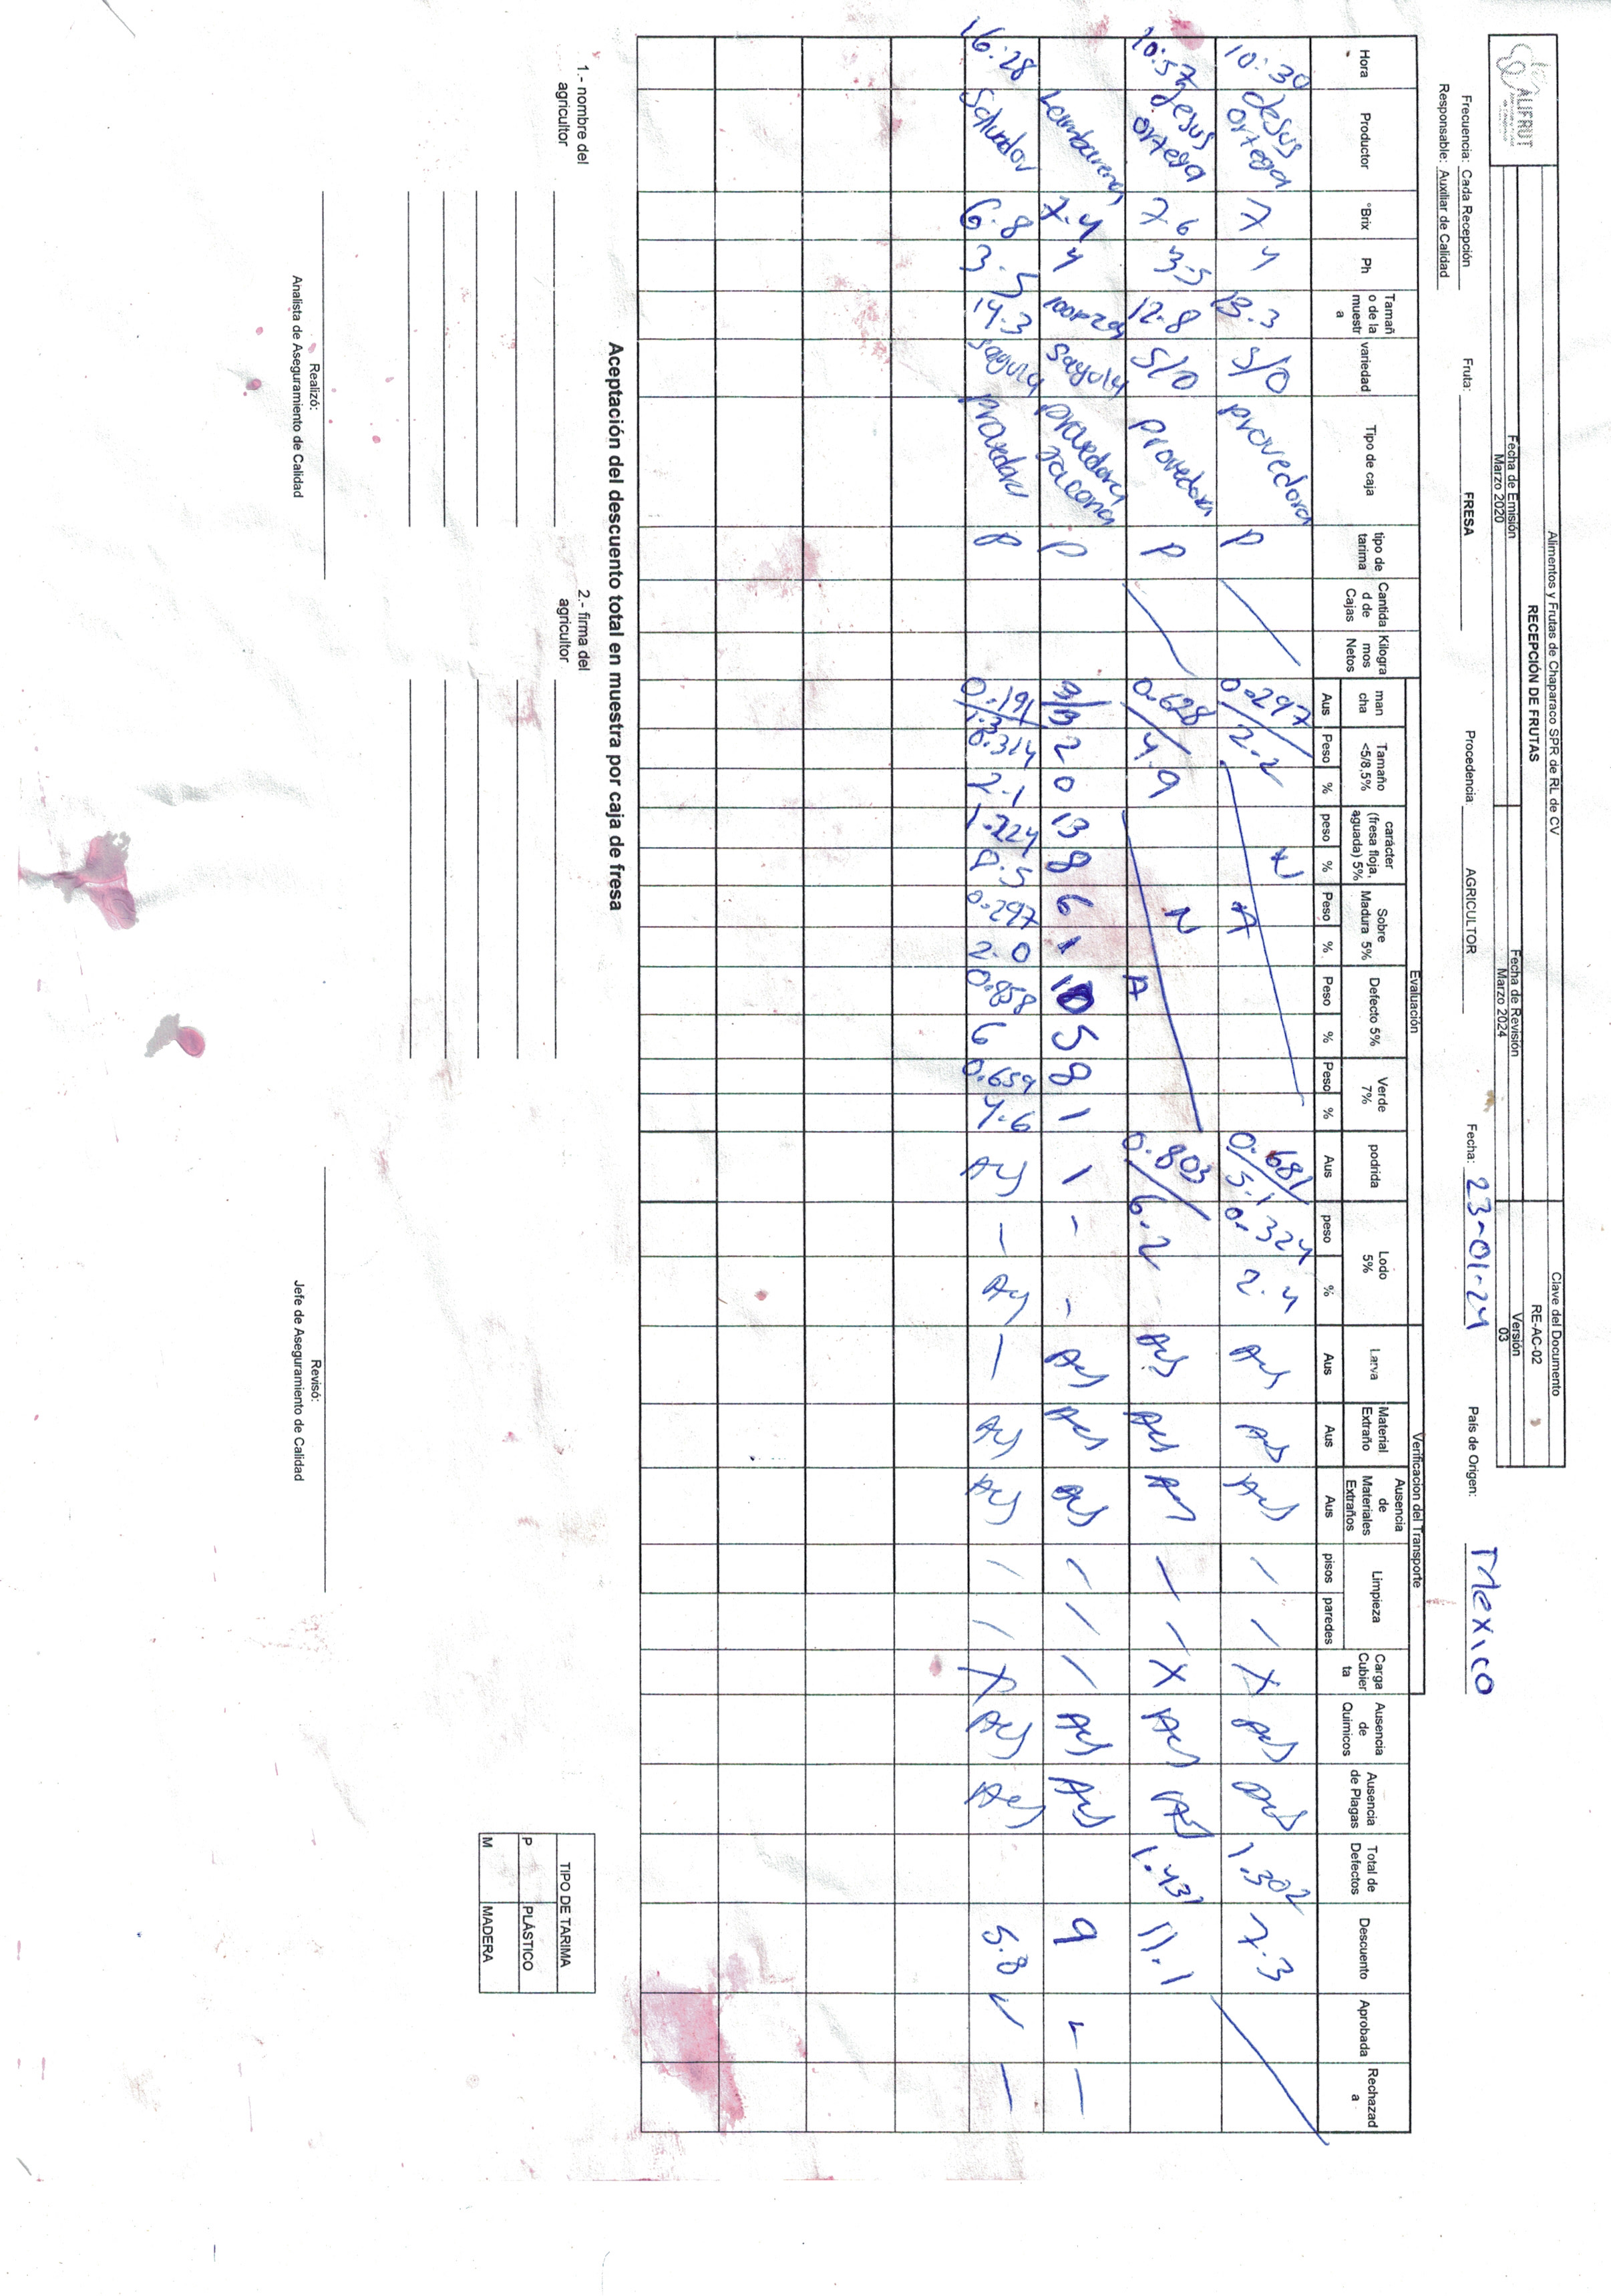 Alimentos y Frutas de Chaparaco SPR de RL de CV
RECEPCIÓN DE FRUTAS
Fecha de Emisión
Marzo 2020
Fecha de Revisión
Marzo 2024
Clave del Documento
RE-AC-02
Versión
03
ALIFRUT
Frecuencia: Cada Recepción Fruta: FRESA Procedencia: AGRICULTOR Fecha: 23-01-24 País de Origen: Mexico
Responsable: Auxiliar de Calidad
Evaluación Verificacion del Transporte
Hora Productor °Brix Ph Tamaño de la muestra variedad Tipo de caja tipo de tarima Cantidad de Cajas Kilogramos Netos mancha Tamaño <5/8,5% carácter (fresa floja, aguada) 5% Sobre Madura 5% Defecto 5% Verde 7% podrida Lodo 5% Larva Material Extraño Ausencia de Materiales Extraños Limpieza Carga Cubierta Ausencia de Quimicos Ausencia de Plagas Total de Defectos Descuento Aprobada Rechazada
Aus Peso % peso % Peso % Peso % Peso % Aus peso % Aus Aus Aus pisos paredes
10:30 Jesus ortega 7 4 13.3 S/O Provedora P 0.297 / 2.2 N A 0.681 / 5.1 0.324 2.4 Aus Aus Aus - - X Aus Aus 1.302 7.3
10:57 Jesus ortega 7.6 3.5 12.8 S/O Provedora P 0.628 / 4.9 N A 0.803 / 6.2 Aus Aus Aus - - X Aus Aus 1.431 11.1
7.4 4 Provedora Jacona P 3/3 2 0 13 8 6 1 10 5 8 1 1 - - Aus Aus Aus - - - Aus Aus 9 ✓ -
16:28 Salvador 6.8 3.5 14.3 Provedora P 0.191 / 1.3 0.314 2.1 1.224 8.5 0.297 2.0 0.858 6 0.659 4.6 Aus - Aus - Aus Aus - - X Aus Aus 5.8 ✓ -
Aceptación del descuento total en muestra por caja de fresa
1.- nombre del agricultor
2.- firma del agricultor
TIPO DE TARIMA
P PLÁSTICO
M MADERA
Realizó:
Analista de Aseguramiento de Calidad
Revisó:
Jefe de Aseguramiento de Calidad